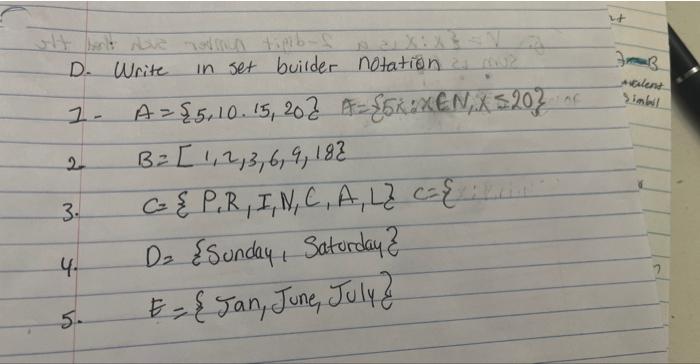 D. Write in set builder notation
1- A = {5, 10. 15, 20} A = {5x : x ∈ N, x ≤ 20}
2 B = [ 1, 2, 3, 6, 9, 18}
3. C = { P, R, I, N, C, A, L} C = {
4. D = {Sunday, Saturday}
5. E = { Jan, June, July}